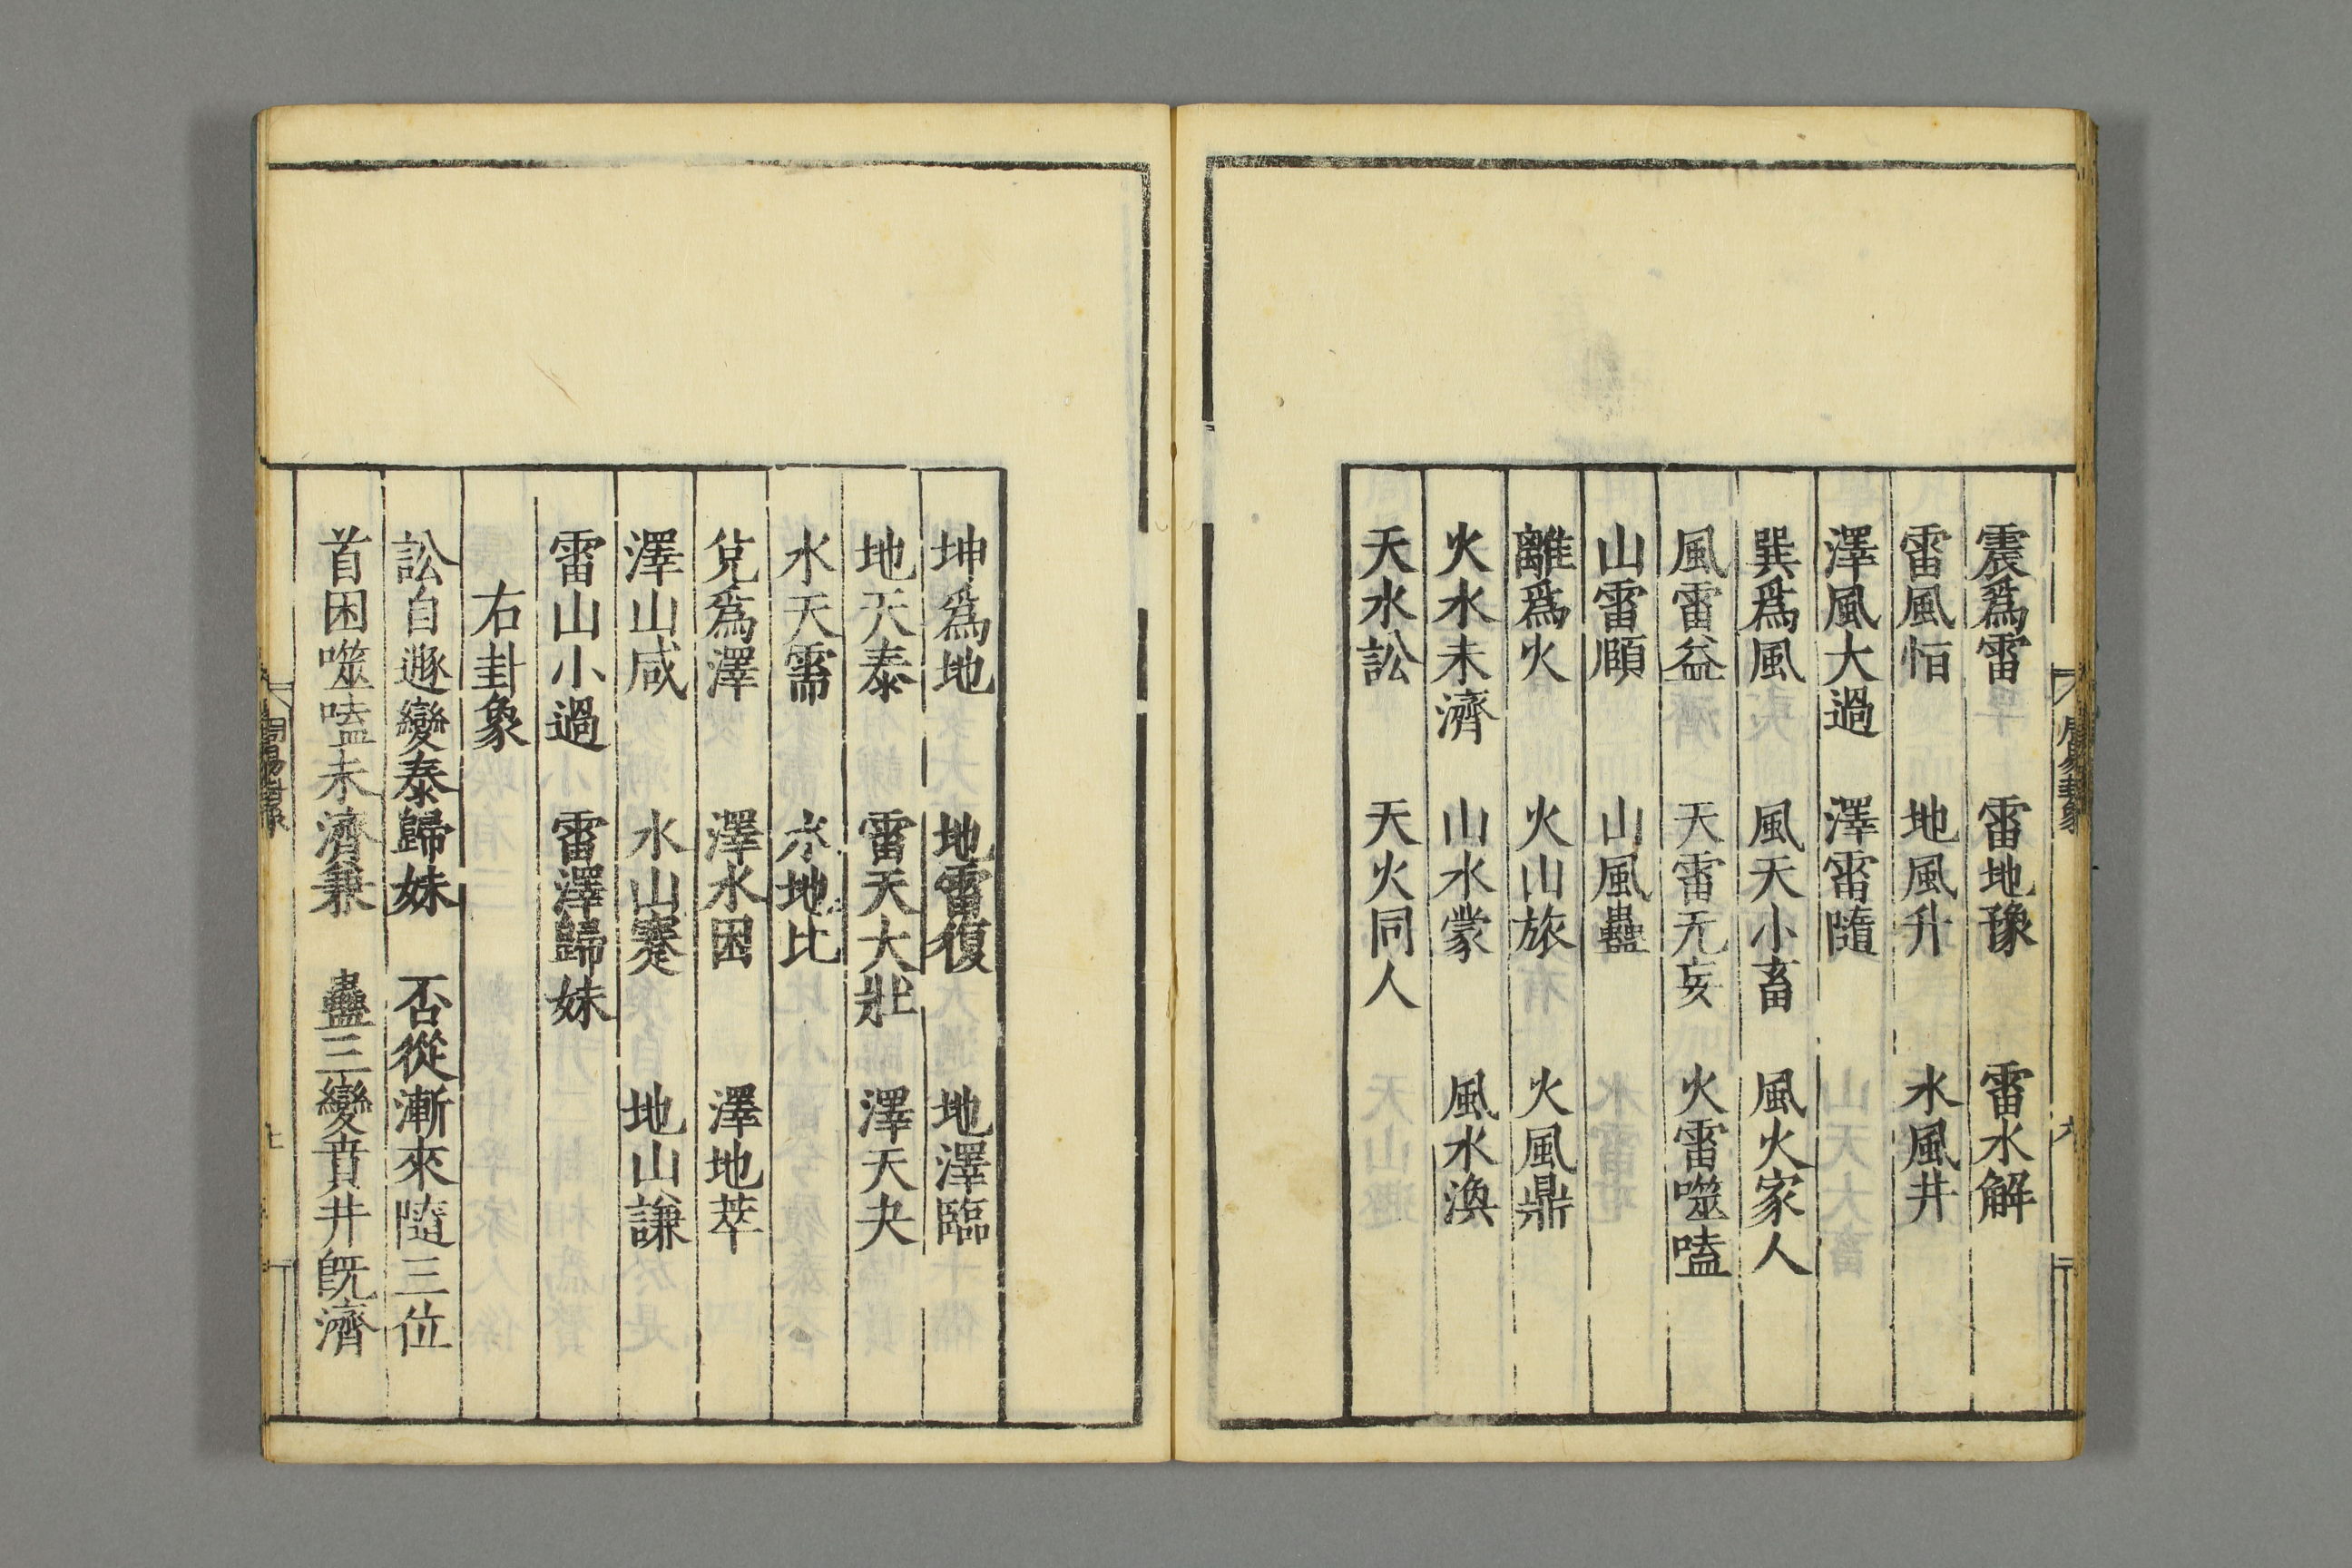 震爲雷　雷地豫　雷水解
雷風恒　地風升　水風井
澤風大過　澤雷隨
巽爲風　風天小畜　風火家人
風雷益　天雷无妄　火雷噬嗑
山雷頤　山風蠱
離爲火　火山旅　火風鼎
火水未濟　山水蒙　風水渙
天水訟　天火同人
坤爲地　地雷復　地澤臨
地天泰　雷天大壯　澤天夬
水天需　水地比
兌爲澤　澤水困　澤地萃
澤山咸　水山蹇　地山謙
雷山小過　雷澤歸妹
右卦象
訟自遯變泰歸妹　否從漸來隨三位
首困噬嗑未濟兼　蠱三變賁井旣濟